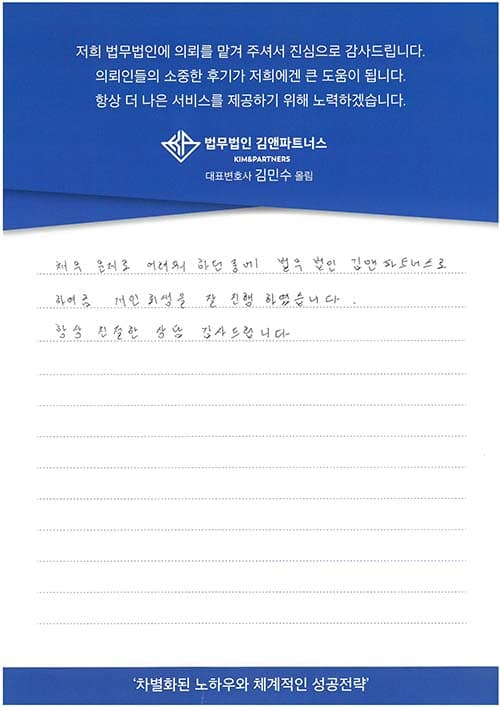 저희 법무법인에 의뢰를 맡겨 주셔서 진심으로 감사드립니다.
의뢰인들의 소중한 후기가 저희에겐 큰 도움이 됩니다.
항상 더 나은 서비스를 제공하기 위해 노력하겠습니다.
법무법인 김앤파트너스
KIM&PARTNERS
대표변호사 김민수 올림
채무 문제로 어려워 하던중에 법무 법인 김앤파트너스로
하여금 개인회생을 잘 진행 하였습니다.
항상 친절한 상담 감사드립니다
'차별화된 노하우와 체계적인 성공전략'